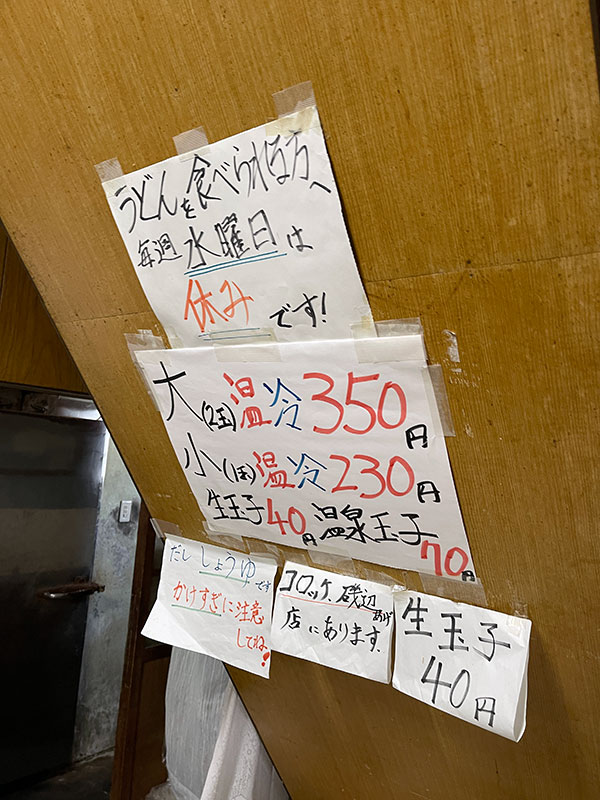 うどんを食べられる方へ
毎週水曜日は
休みです!
大(2玉)温冷350円
小(1玉)温冷230円
生玉子40円温泉玉子70円
だししょうゆです
かけすぎに注意
してね!
コロッケ、磯辺あげ
店にあります。
生玉子
40円